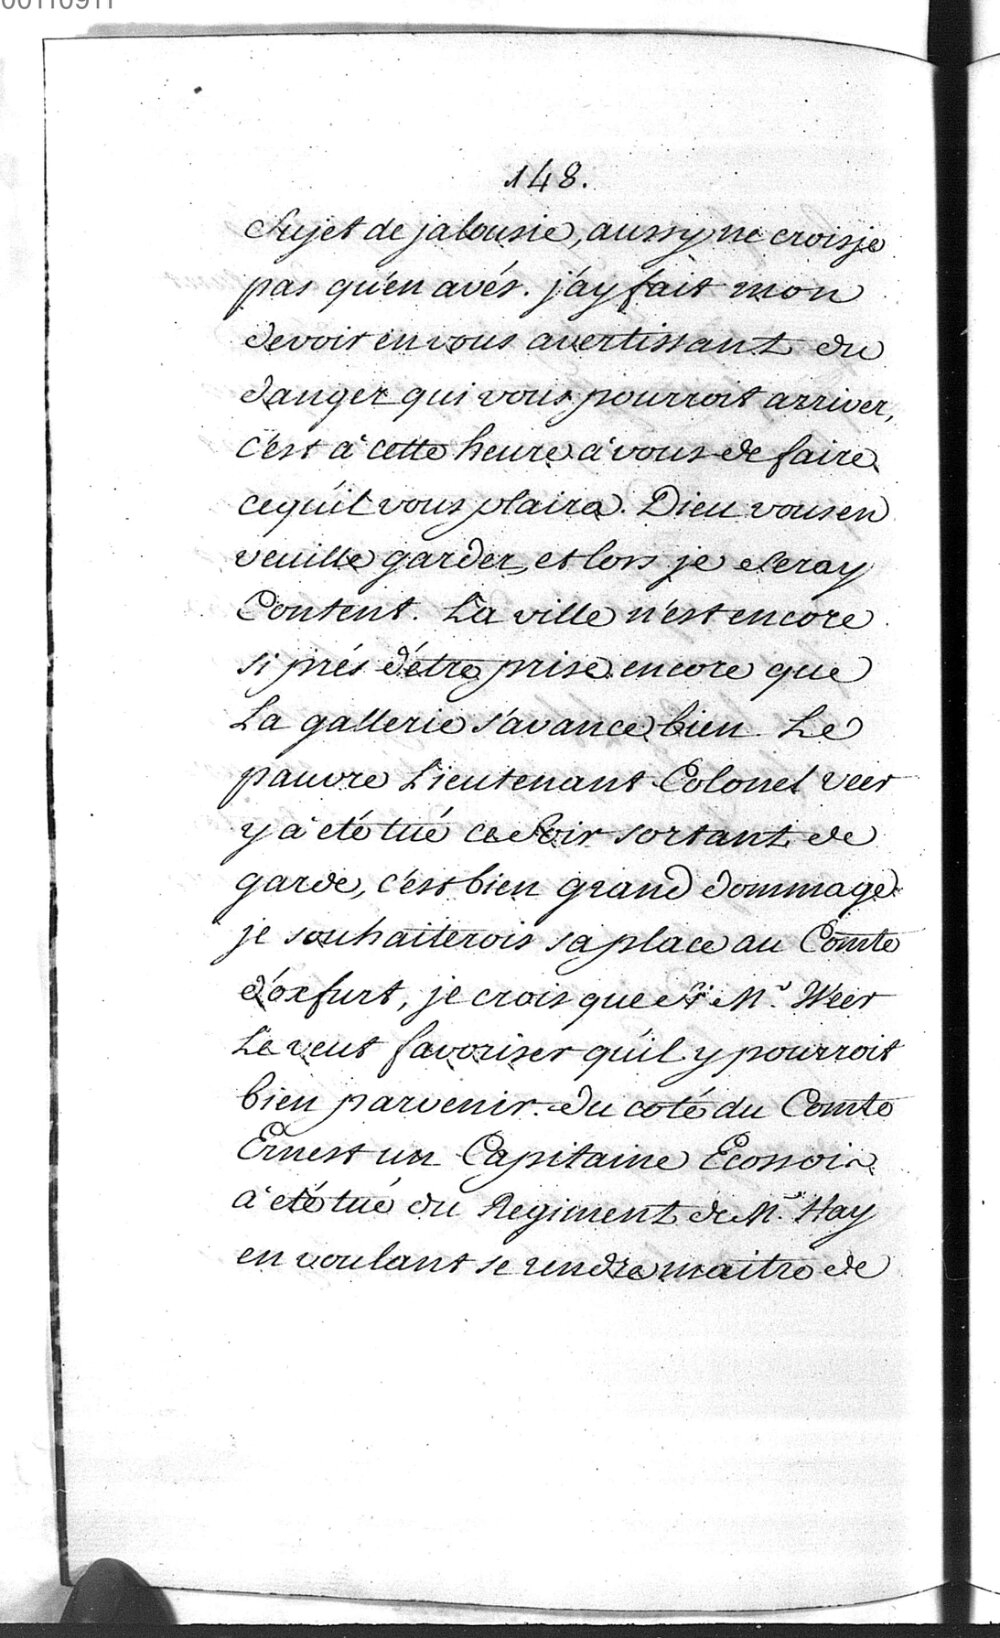 00110911
148.
Sujet de jalousie, aussy ne crois je
pas qu'en avés. j'ay fait mon
devoir en vous avertissant du
danger qui vous pourroit arriver,
c'est à cette heure à vous de faire
ce qu'il vous plaira. Dieu vous en
veuille garder, et lors je seray
Content. La ville n'est encore
si prés d'étre prise encore que
La gallerie s'avance bien. Le
pauvre Lieutenant Colonel Veer
y à eté tué ce Soir sortant de
garde, c'est bien grand dommage
je souhaiterois sa place au Comte
d'oxfurt, je crois que si Mr. Weer
Le veut favoriser qu'il y pourroit
bien parvenir. du coté du Comte
Ernest un Capitaine Ecossois
à eté tué du Regiment de Mr. Hay
en voulant se rendre maitre de